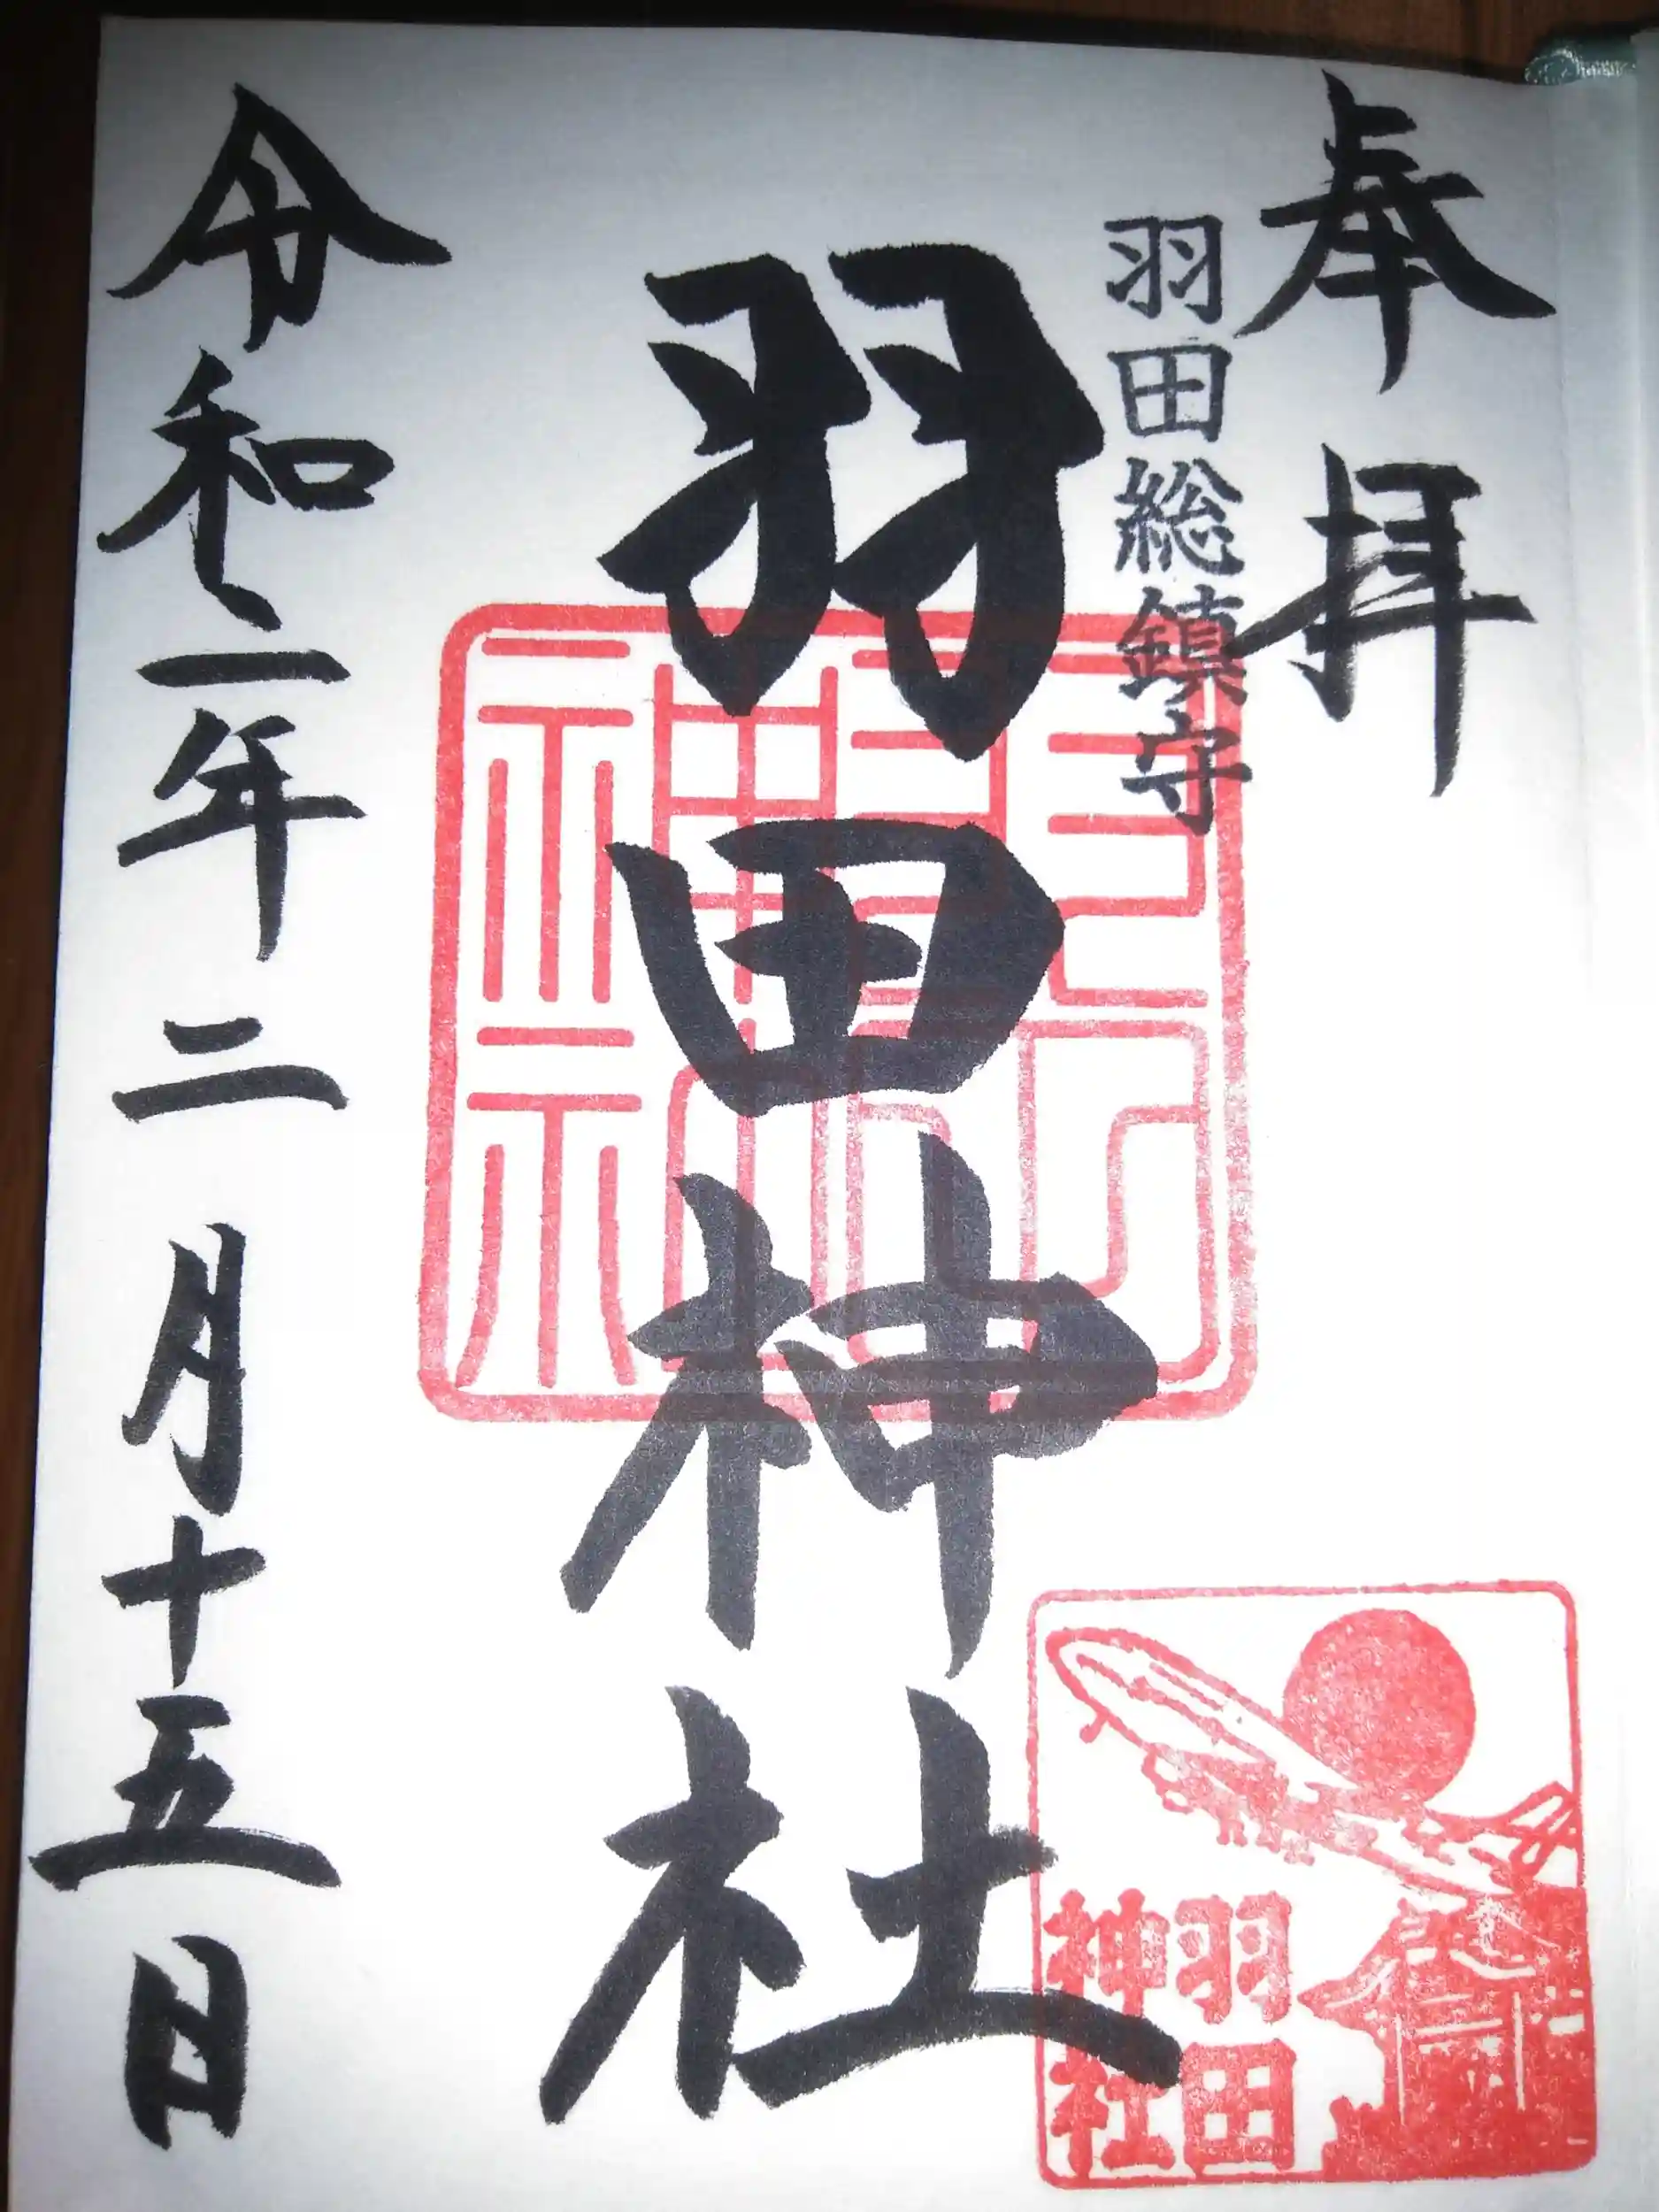 奉拝
羽田総鎮守
羽田神社
羽田
神社
令和二年二月十五日